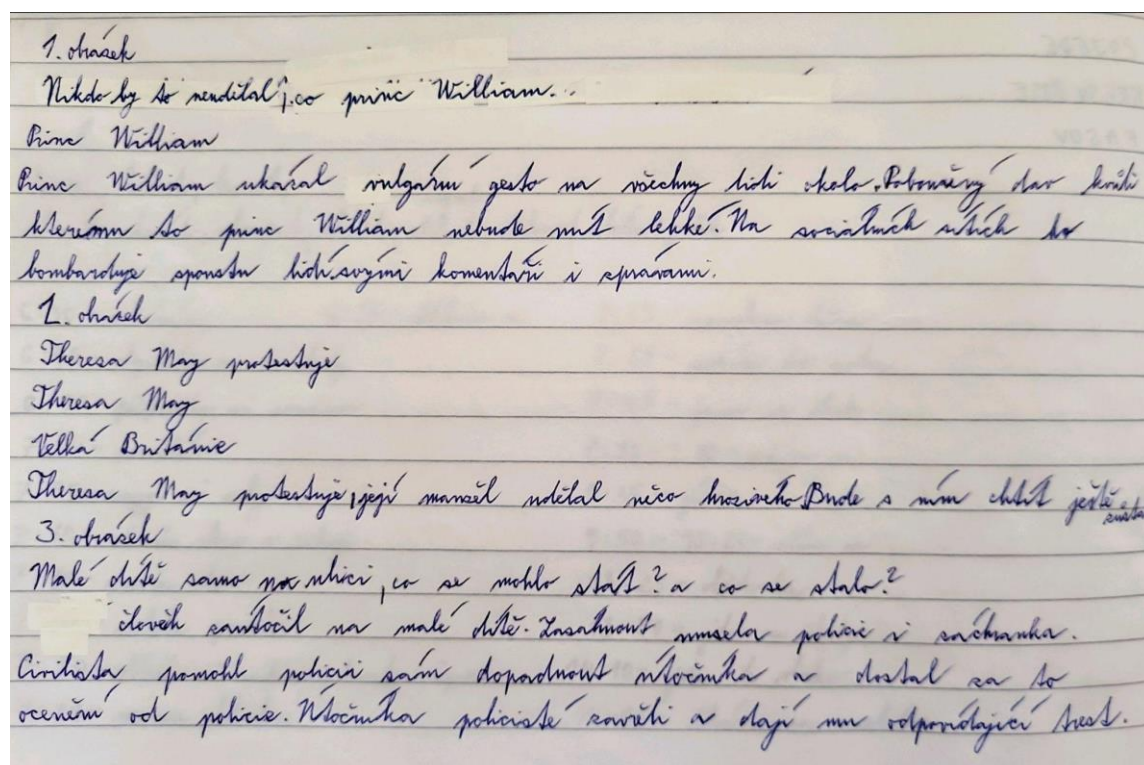 1. obrázek
Nikdo by to neudělal, co princ William.
Princ William
Princ William ukázal vulgární gesto na všechny lidi okolo. Pobouřivý dav kvůli
kterému to princ William nebude mít lehké. Na sociálních sítích ho
bombarduje spoustu lidí svými komentáři i zprávami.
2. obrázek
Theresa May protestuje
Theresa May
Velká Británie
Theresa May protestuje, její manžel udělal něco hrozivého. Bude s ním chtít ještě
3. obrázek
Malé dítě samo na ulici, co se mohlo stát? a co se stalo?
člověk zaútočil na malé dítě. Zasáhnout musela policie i záchranka.
Civilista pomohl policii sám dopadnout útočníka a dostal za to
ocenění od policie. Útočníka policisté zavřeli a dají mu odpovídající trest.